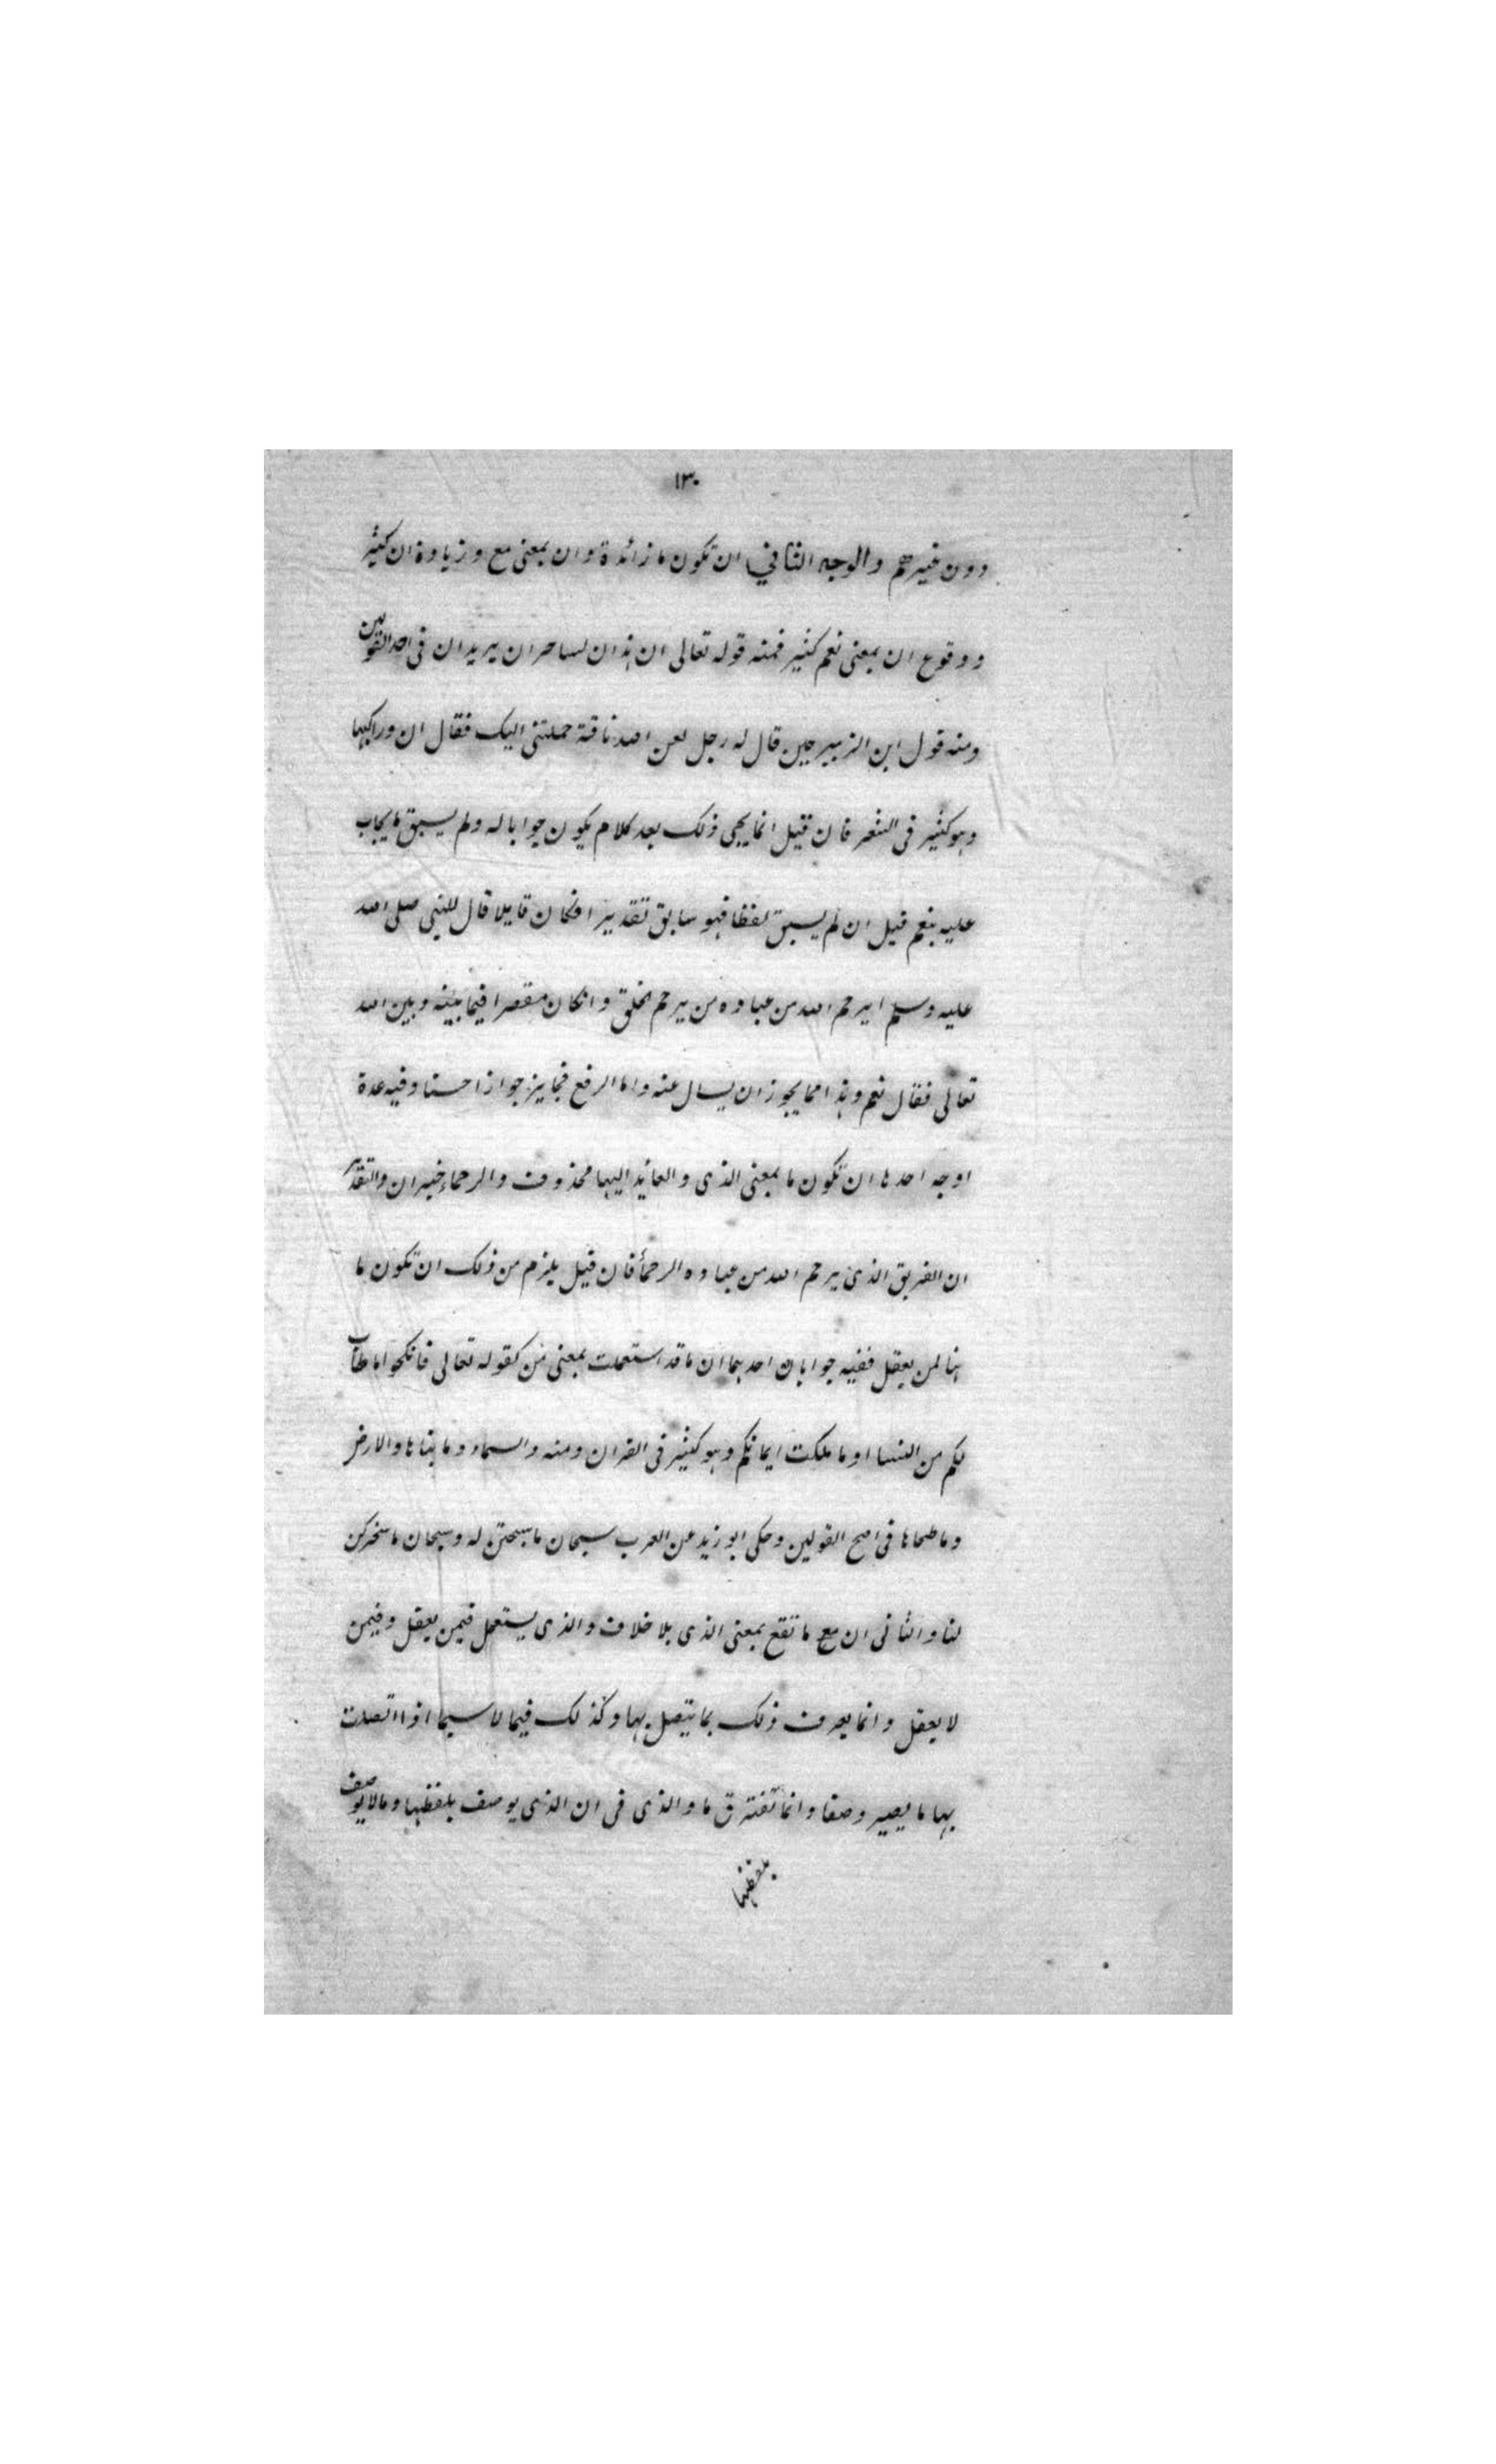 ١٣٠
دون غيرهم والوجه الثاني ان تكون ما زائدة وان بمعنى مع وزيادة ان كثير
ووقوع ان بمعنى نعم كثير فمنه قوله تعالى ان هذان لساحران يريدان في احد القولين
ومنه قول ابن الزبير حين قال له رجل لعن الله ناقة حملتني اليك فقال ان وراكبها
وهو كثير في الشعر فان قيل انما يجي ذلك بعد كلام يكون جوابا له ولم يسبق ما يجاب
عليه بنعم قيل ان لم يسبق لفظا فهو سابق تقديرا فكان قايلا قال للنبي صلى الله
عليه وسلم ايرحم الله من عباده من يرحم الخلق وانكان مقصرا فيما بينه وبين الله
تعالى فقال نعم وهذا مما يجوز ان يسال عنه واما الرفع فجايز جوازا حسنا وفيه عدة
اوجه احدها ان تكون ما بمعنى الذى والعائد اليها محذوف والرحماء خبر ان والتقدير
ان الفريق الذى يرحم الله من عباده الرحمأ فان قيل يلزم من ذلك ان تكون ما
هنا لمن يعقل ففيه جوابان احدهما ان ما قد استعملت بمعنى من كقوله تعالى فانكحوا ما طاب
لكم من النسا او ما ملكت ايمانكم وهو كثير في القران ومنه والسماء وما بناها والارض
وما طحاها في اصح القولين وحكى ابو زيد عن العرب سبحان ما سبحتن له وسبحان ما سخركن
لنا والثانى ان مع ما تقع بمعنى الذى بلا خلاف والذى يستعمل فيمن يعقل وفيمن
لا يعقل وانما يعرف ذلك بما يتصل بها وكذلك فيما لا سيما اذا اتصلت
بها ما يصير وصفا وانما تفترق ما والذى في ان الذى يوصف بلفظها وما لا يوصف
بلفظها